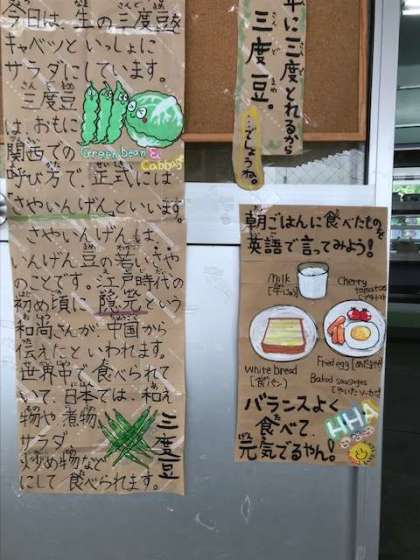 今日は、生の三度豆を
キャベツといっしょに
サラダにしています。
三度豆
は、おもに
関西での
呼び方で、正式には
「さやいんげん」といいます。
Green bean & Cabbage
さやいんげんは、
いんげん豆の若いさや
のことです。江戸時代の
初め頃に隠元という
和尚さんが、中国から
伝えたといわれます。
世界中で食べられて
いて、日本では、和え
物や煮物
サラダ
炒め物など
にして食べられます。
三度豆
年に三度とれるから
三度豆。
…でしょうね。
朝ごはんに食べたものを
英語で言ってみよう!
milk
[牛にゅう]
Cherry
tomatoes
White bread
[食パン]
Fried egg [めだまやき]
Baked sausages
バランスよく
食べて、
元気でるやん!